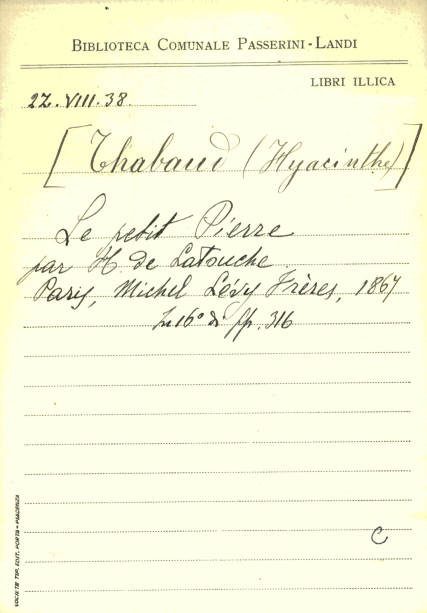 BIBLIOTECA COMUNALE PASSERINI-LANDI
LIBRI ILLICA
22.VIII.38.
[Thabaud (Hyacinthe)]
Le petit Pierre
par H. de Latouche
Paris, Michel Lévy Frères, 1867
In 16° di pp. 316
C
SOCIETÀ TIP. EDIT. PORTA - PIACENZA